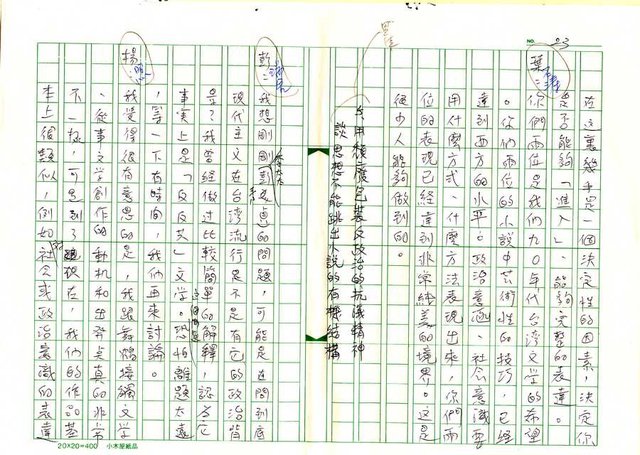 NO. 23
在這裏幾乎是一個決定性的因素，決定你
是否能夠「進入」、能夠完整的表達。
葉：
你們兩位是我們九〇年代台灣文學的希望
。你們兩位的小說中，藝術性的技巧，已經
達到西方的水平。政治意涵、社會意識要
用什麼方式、什麼方法表現出來，你們兩
位的表現已經達到非常純美的境界。這是
很少人能夠做到的。
△用頹廢包裝反政治的抗議精神
談思想不能跳出小說的有機結構
我想剛剛彭
的問題，可能是在問到底
現代主文在台灣流行是不是有它的政治背
景？我曾經做過比較簡單的解釋，認為它
事實上是「反反共」文學。恐怕離題太遠
，等一下有時間，我們再來討論。
楊：
我覺得很有意思的是，我跟舞鶴接觸文學
、從事文學創作的動機和出發點真的非常
不一樣，可是到了現在，我們的作品基
本上很類似，例如社會或政治意識的表達
20×20=400 小木屋紙品